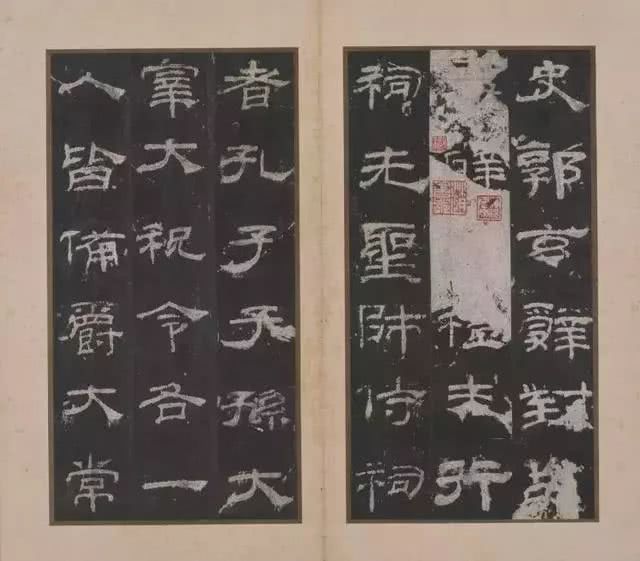 史郭玄辭對
辟禮未行
祠先聖師侍祠
者孔子子孫大
宰大祝令各一
人皆備爵大常